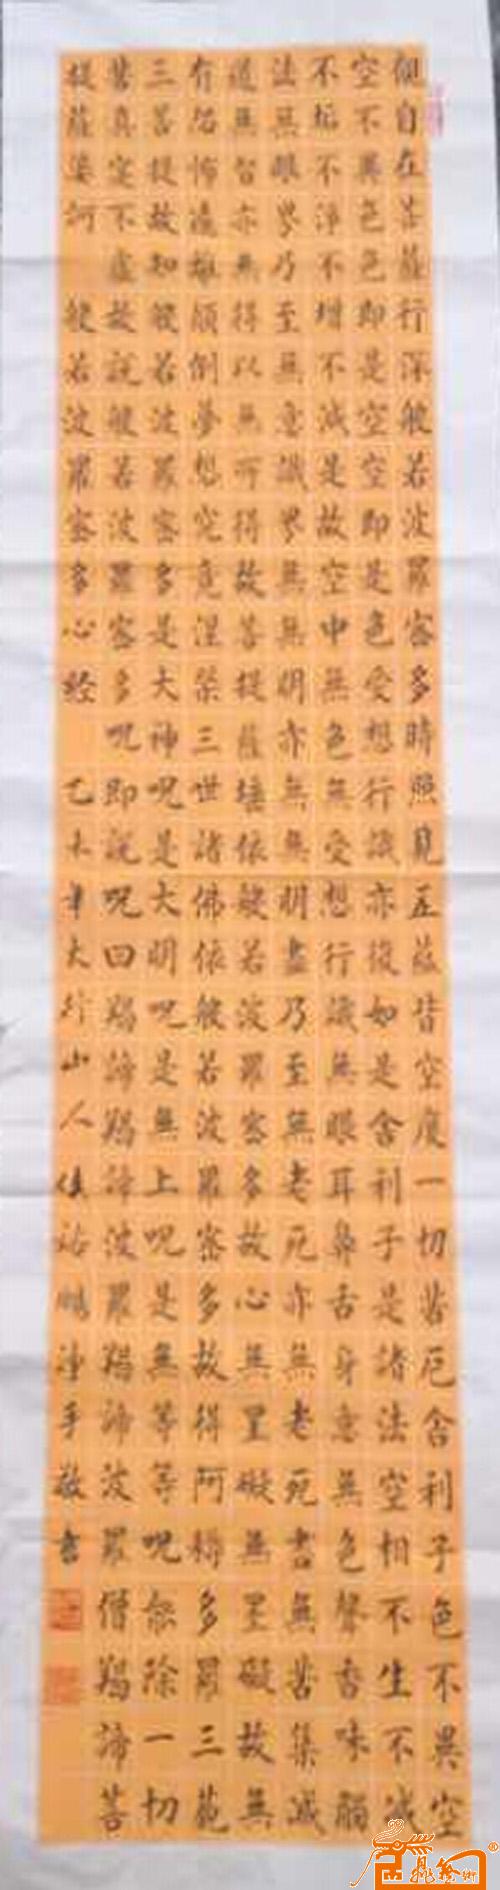 觀自在菩薩行深般若波羅密多時照見五蘊皆空度一切苦厄舍利子色不異空
空不異色色即是空空即是色受想行識亦復如是舍利子是諸法空相不生不滅
不垢不淨不增不減是故空中無色無受想行識無眼耳鼻舌身意無色聲香味觸
法無眼界乃至無意識界無無明亦無無明盡乃至無老死亦無老死盡無苦集滅
道無智亦無得以無所得故菩提薩埵依般若波羅密多故心無罣礙無罣礙故無
有恐怖遠離顛倒夢想究竟涅槃三世諸佛依般若波羅密多故得阿耨多羅三藐
三菩提故知般若波羅密多是大神呪是大明呪是無上呪是無等等呪能除一切
苦真實不虛故說般若波羅密多呪即說呪曰羯諦羯諦波羅羯諦波羅僧羯諦菩
提薩婆訶 般若波羅密多心經 乙未年大行山人 手敬書